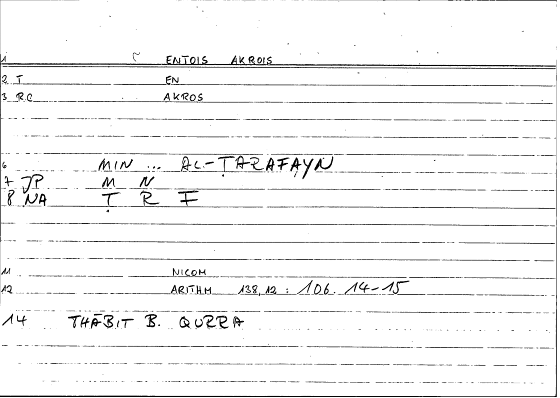 1 ENTOIS AKROIS
2 T EN
3 RC AKROS
6 MIN ... AL-ṬARAFAYN
7 JP M N
8 NA Ṭ R F
11 NICOM
12 ARITHM 138,12 : 106. 14-15
14 THĀBIT B. QURRA